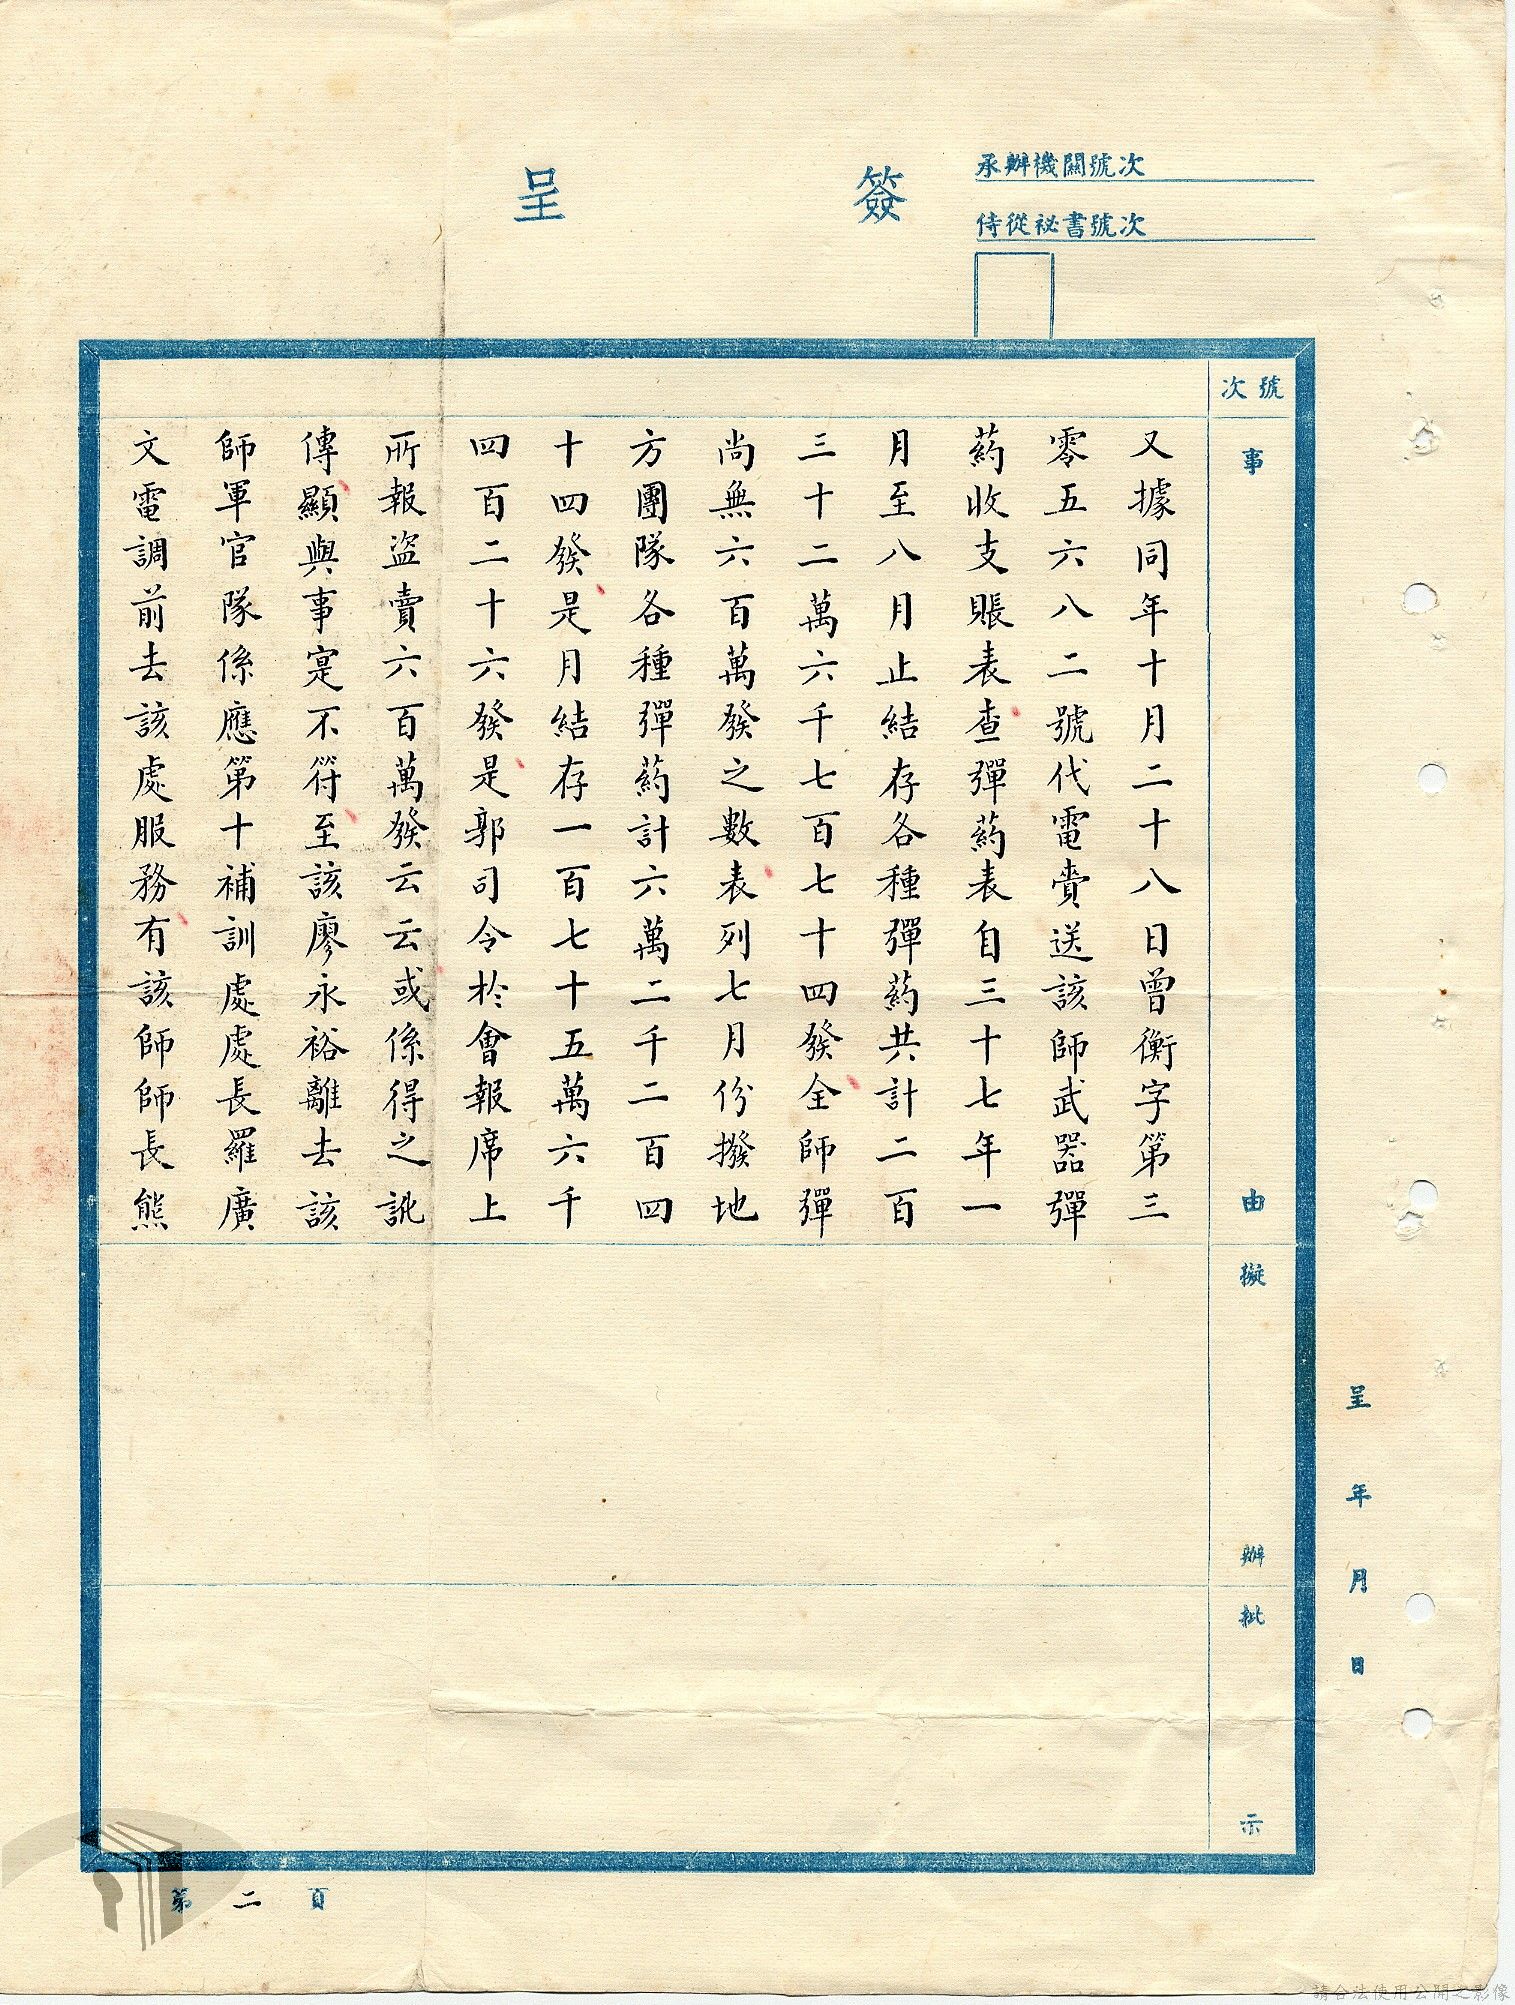 承辦機關號次
侍從祕書號次
簽呈
號次
事由
擬辦
批示
又據同年十月二十八日曾衡字第三
零五六八二號代電賫送該師武器彈
葯收支賬表查彈葯表自三十七年一
月至八月止結存各種彈葯共計二百
三十二萬六千七百七十四發全師彈
尚無六百萬發之數表列七月份撥地
方團隊各種彈葯計六萬二千二百四
十四發是月結存一百七十五萬六千
四百二十六發是郭司令於會報席上
所報盜賣六百萬發云云或係得之訛
傳顯與事寔不符至該廖永裕離去該
師軍官隊係應第十補訓處處長羅廣
文電調前去該處服務有該師師長熊
呈年月日
第二頁
請合法使用公開之影像